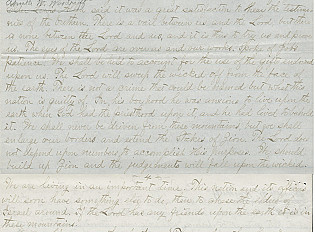 Apostle W. Woodruff said it was a great satisfaction to hear the testimo-
nies of the brethren. There is a veil between us and the Lord, but there
is none between the Lord and us, and it is this to try us and prove
us. The eyes of the Lord are over us and our works
We shall be held to account for the use of the gifts endowed
upon us. The Lord will sweep the wicked off from the face of
the earth. There is not a crime that could be named but what this
nation is guilty of. In his boyhood he was anxious to live upon the
earth when God had the priesthood upon it and he had lived to behold
it. We shall never be driven from these mountains, but we shall
enlarge our borders and extend the stakes of Zion. The Lord does
not depend upon numbers to accomplish his purposes. We should
build up Zion and the judgments will fall upon the wicked.
-4-
We are living in an important time. This nation and its rulers
will soon have something else to do, than to abuse the Saints of
around. If the Lord has any friends upon the earth it is in
these mountains.